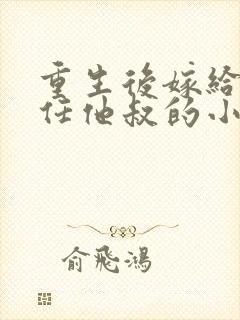 重生後嫁給
任他叔的小
俞飛鴻